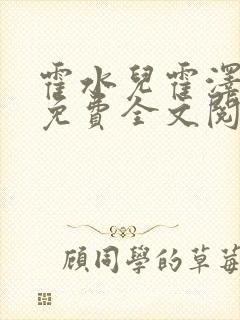 霍水兒霍澤
免費全文閱
顧同學的草莓